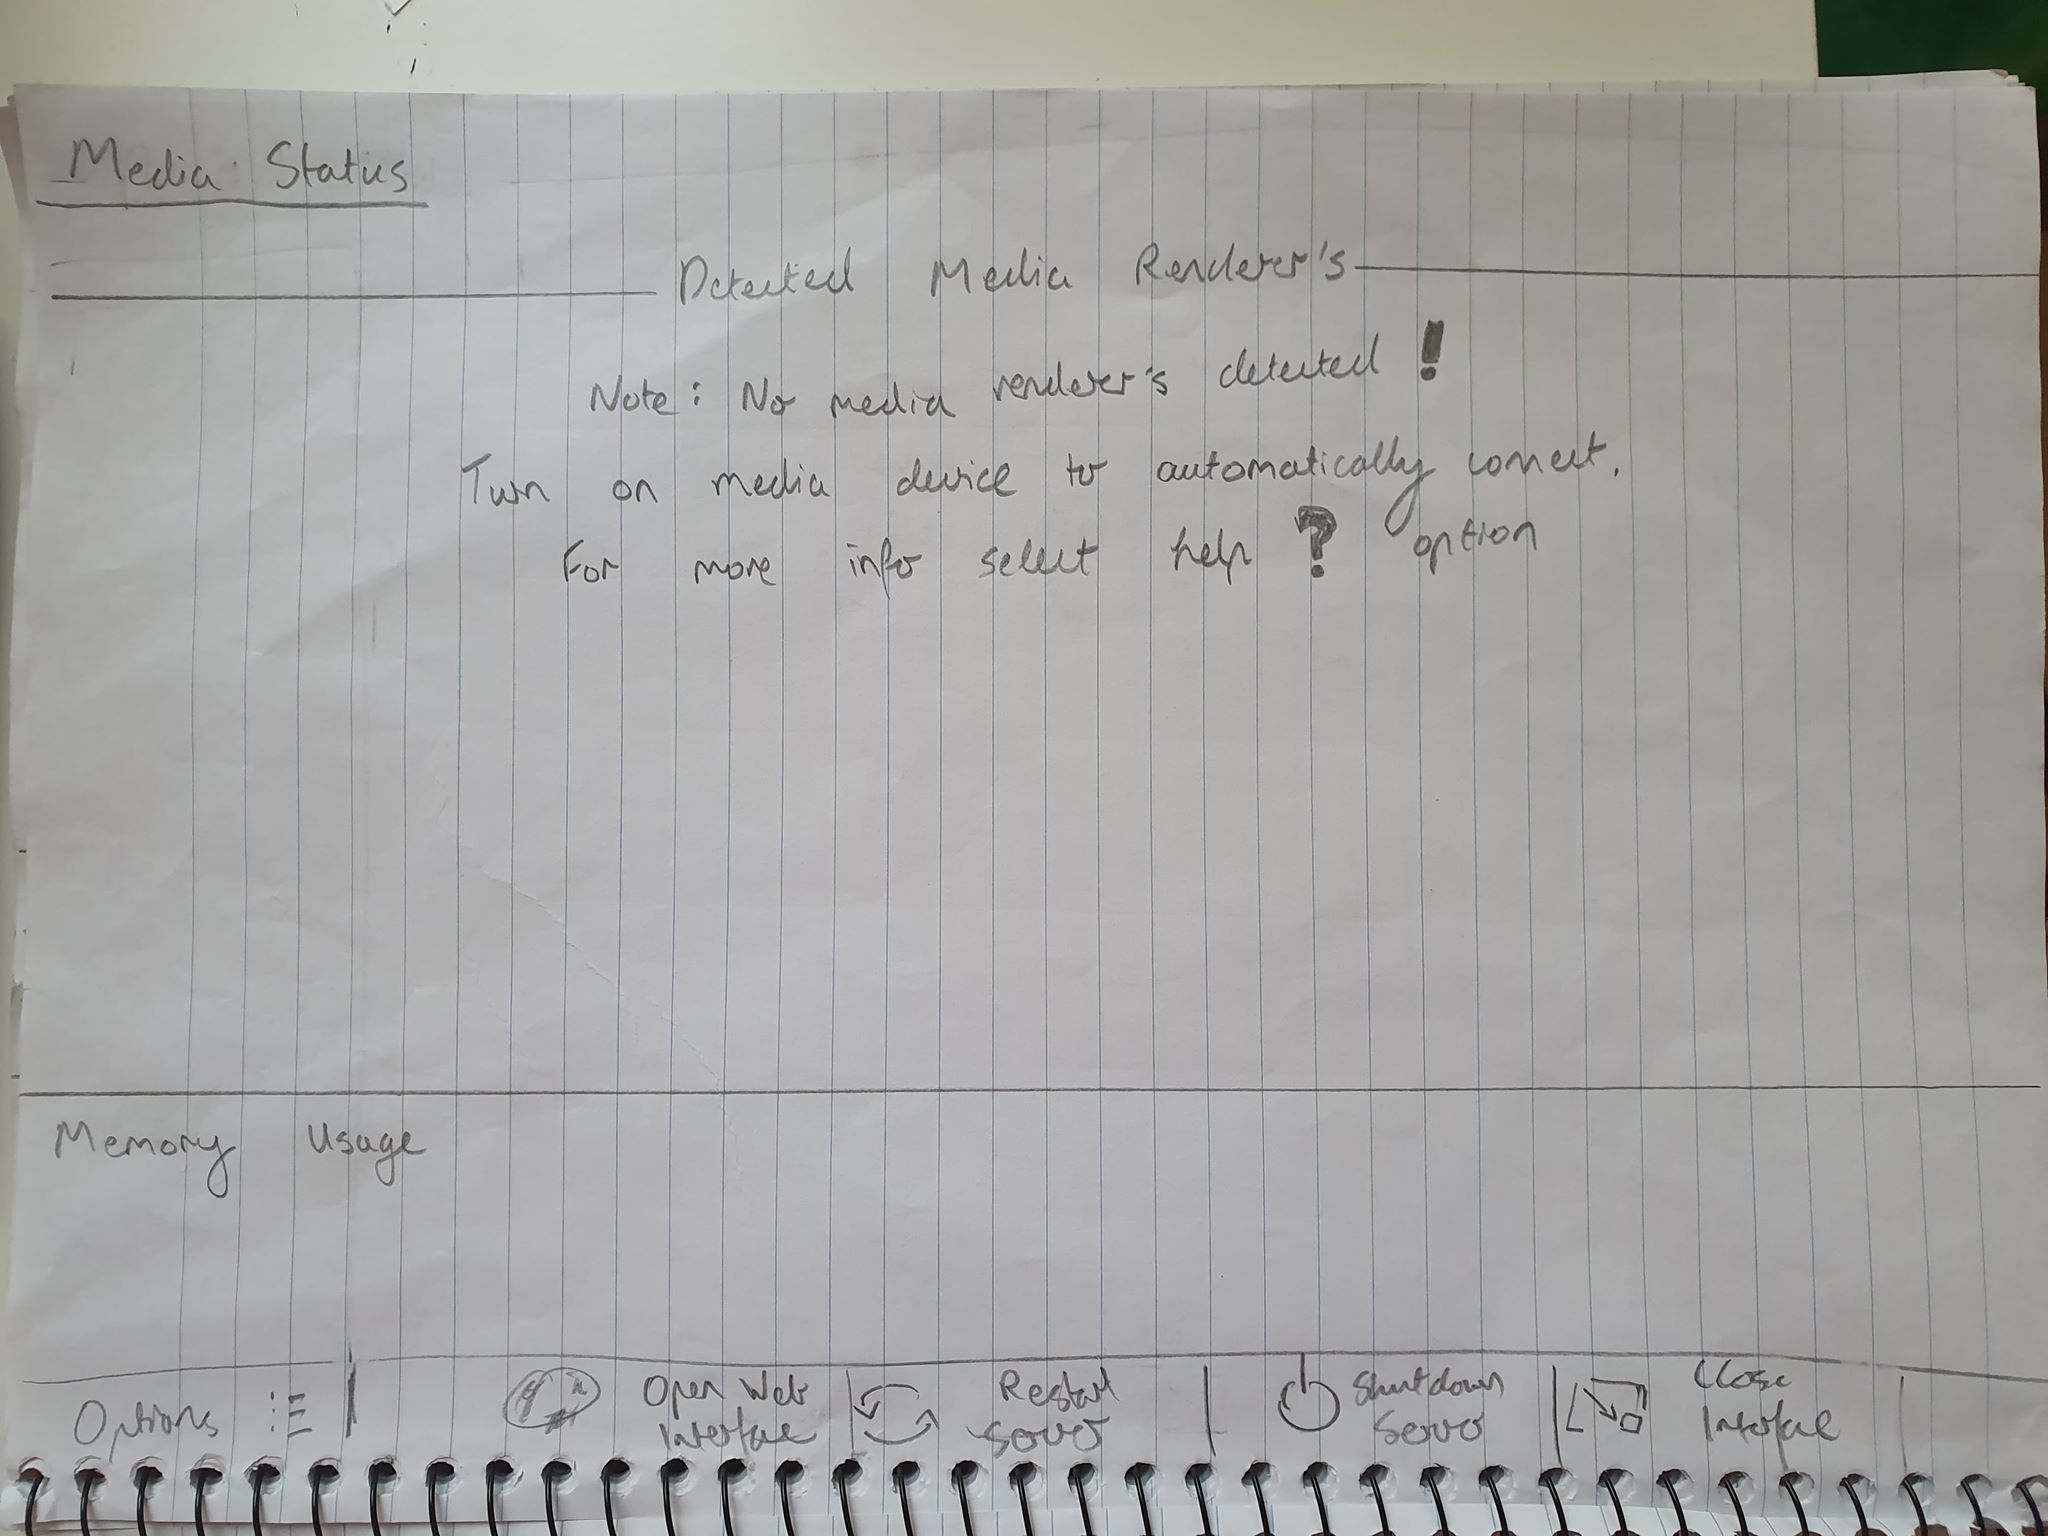 Media Status
Detected Media Renderer's
Note: No media renderer's detected!
Turn on media device to automatically connect.
For more info select help ? option
Memory Usage
Options
Open Web
Interface
Restart
Server
Shutdown
Server
Close
Interface